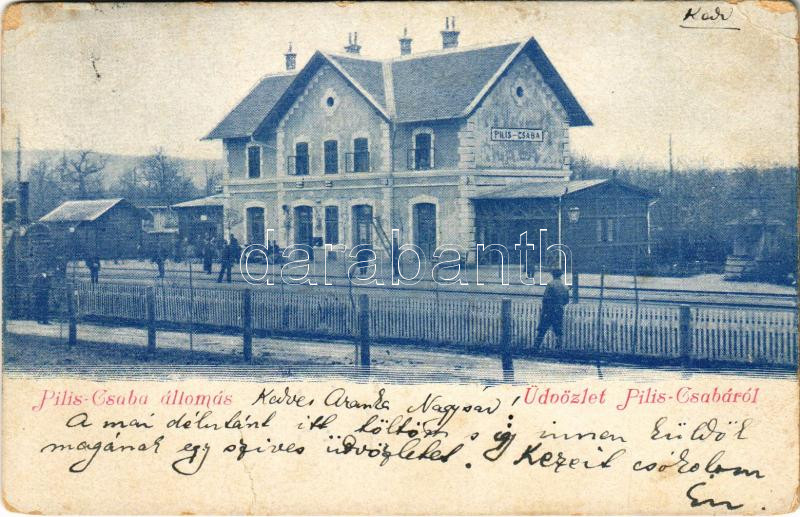 PILIS-CSABA
darabanth.com
Pilis-Csaba állomás
Üdvözlet Pilis-Csabáról
Kedves Aranka Nagysád!
A mai délutánt itt töltöm s így innen küldök
magának egy szives üdvözletet. Kezeit csókolom